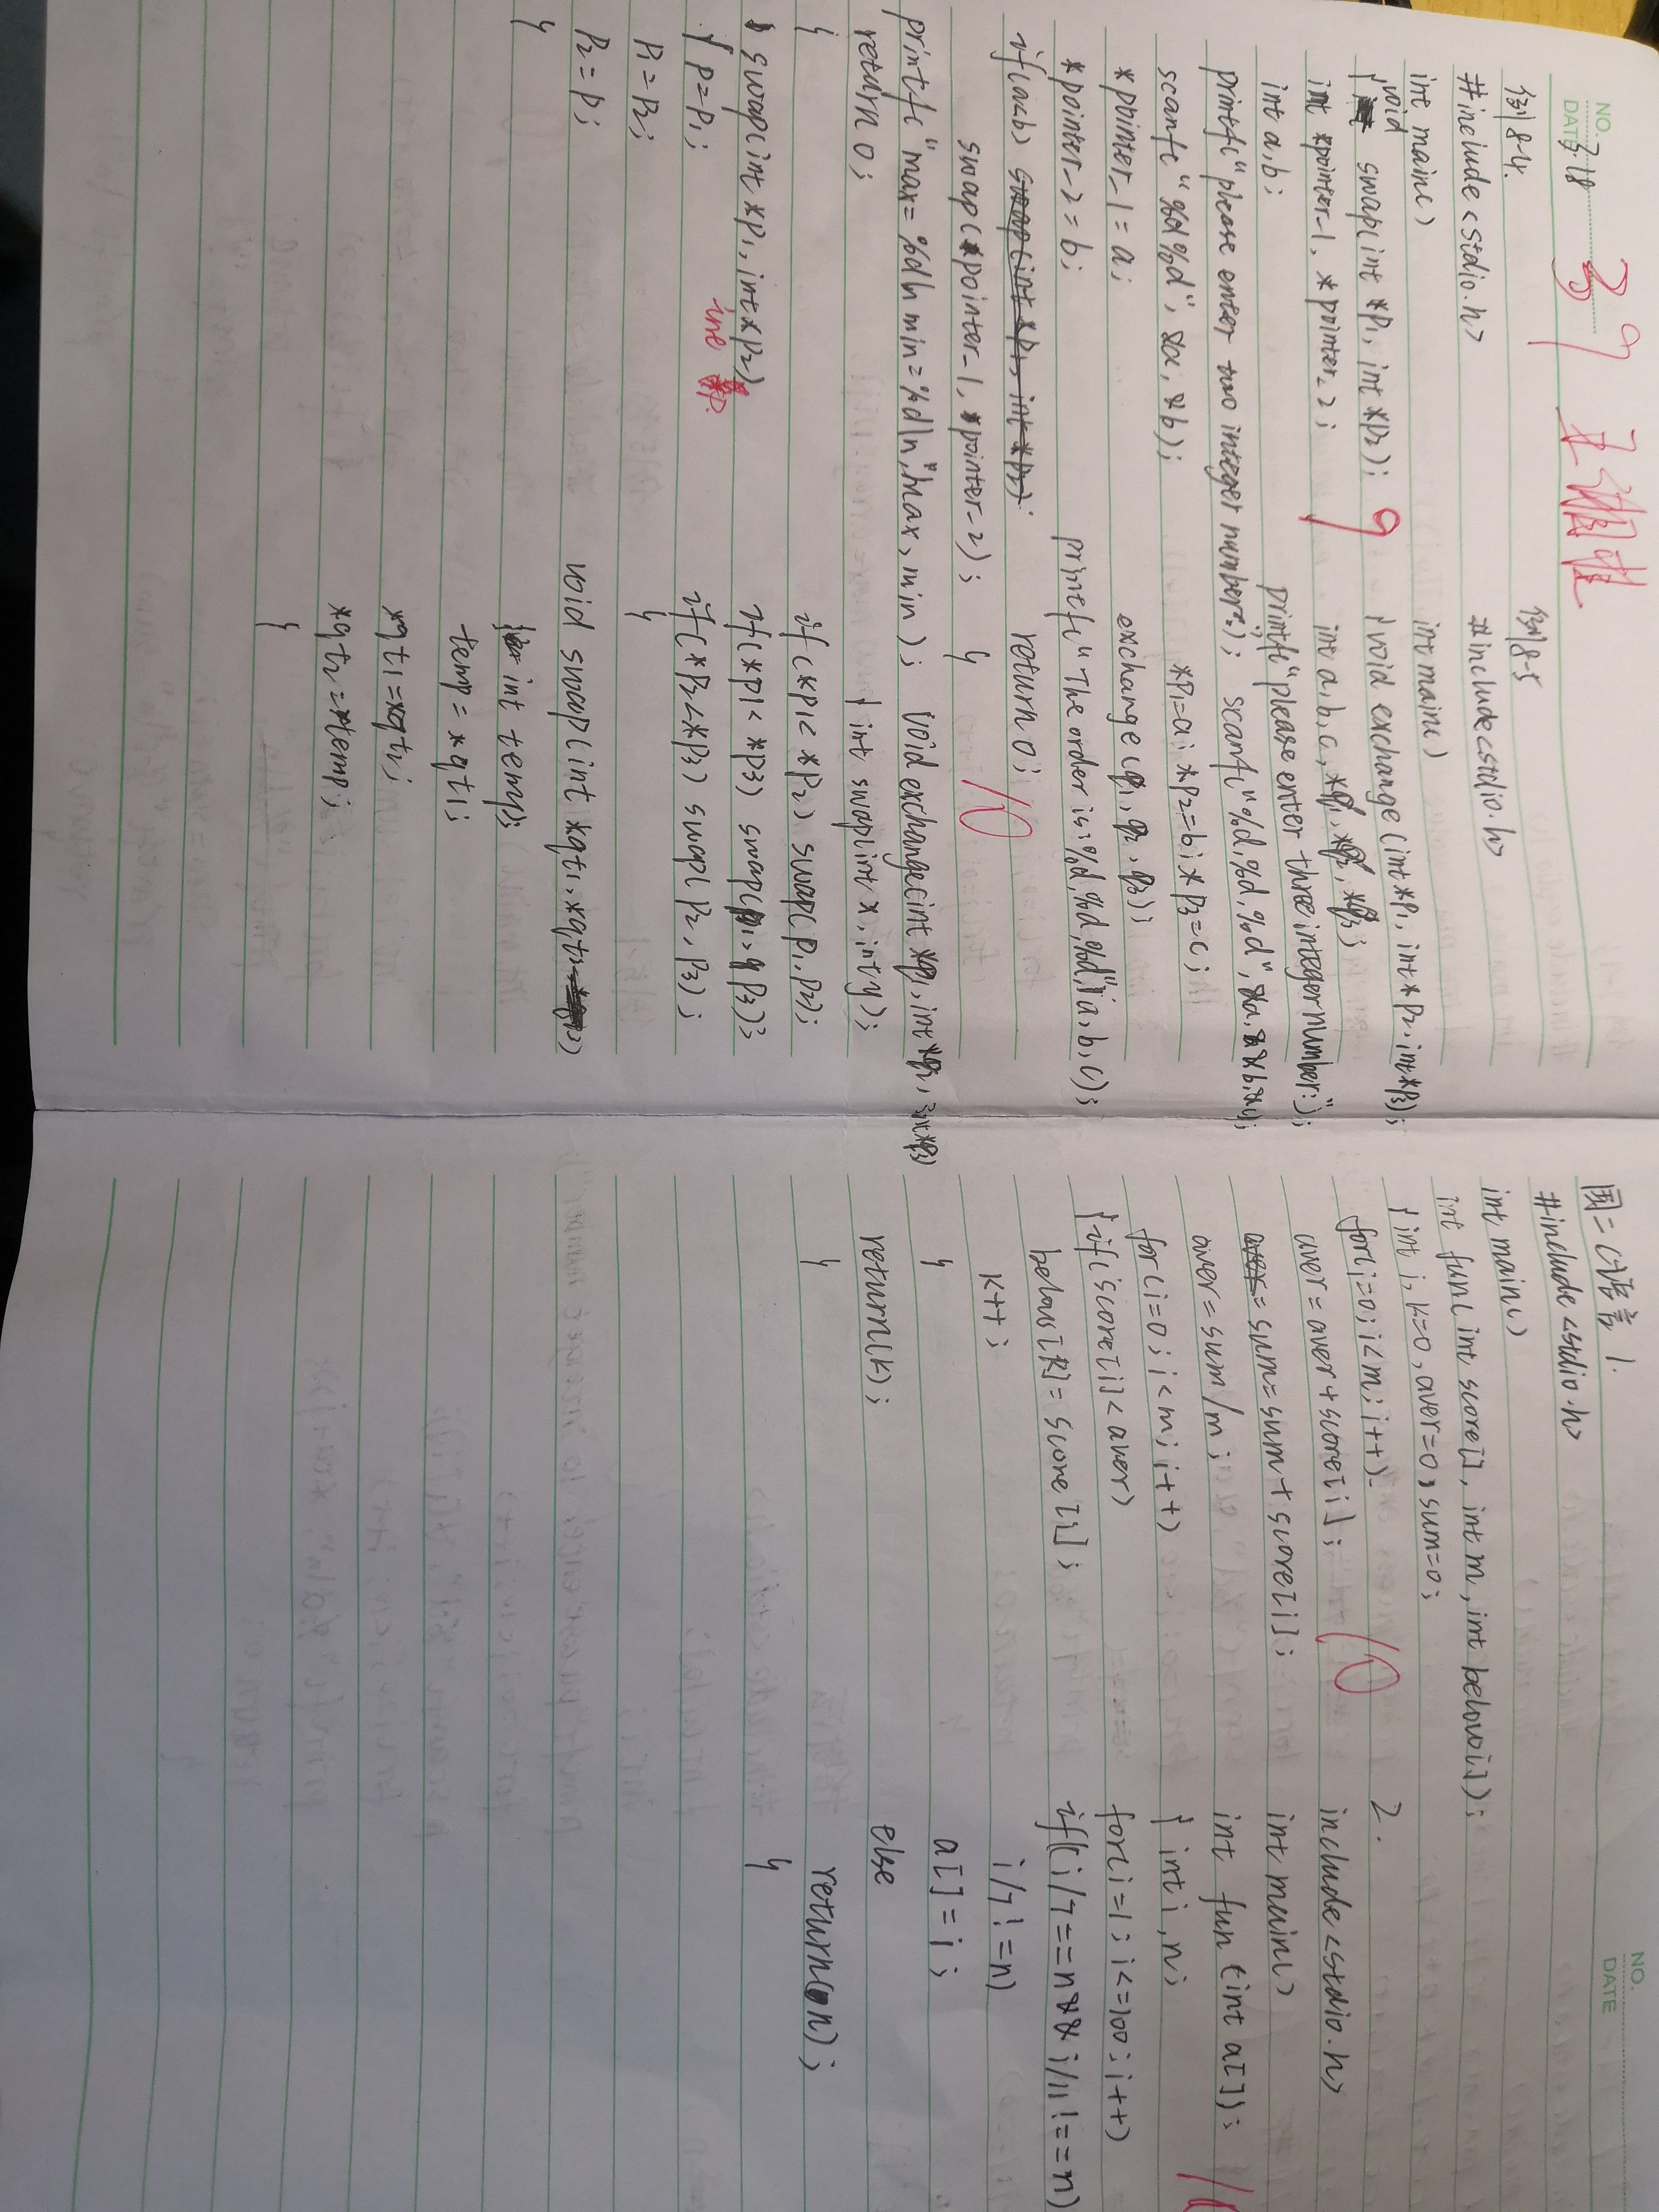 NO.
DATE 3.18
39
例8-4.
#include<stdio.h>
int main()
void
{ swap(int *p1, int *p2);
int *pointer-1, *pointer-2;
int a,b;
printf("please enter two integer number:");
scanf("%d%d", &a, &b);
*pointer-1=a;
*pointer-2=b;
if(a<b) swap(int *p1, int *p2);
swap(*pointer-1, *pointer-2);
printf("max=%d\n min=%d\n",max,min);
return 0;
}
swap(int *p1, int *p2)
{ p=p1;
int *p.
p1=p2;
p2=p;
}
9
例8-5
#include<stdio.h>
int main()
{ void exchange(int *p1, int *p2, int *p3);
int a,b,c, *p1, *p2, *p3;
printf("please enter three integer number:");
scanf("%d,%d,%d", &a, &b, &c);
*p1=a; *p2=b; *p3=c;
exchange(p1, p2, p3);
printf("The order is:%d,%d,%d",a,b,c);
return 0;
}
10
void exchange(int *p1, int *p2, int *p3)
{ int swap(int x, int y);
if(*p1<*p2) swap(p1, p2);
if(*p1<*p3) swap(p1, p3);
if(*p2<*p3) swap(p2, p3);
}
void swap(int *qt1, *qt2)
{ int temp;
temp=*qt1;
*qt1=*qt2;
*qt2=temp;
}
NO.
DATE
国二C语言 1.
#include<stdio.h>
int main()
int fun(int score[], int m, int below[]);
{ int i, k=0, aver=0, sum=0;
for(i=0; i<m; i++)
aver=aver+score[i];
sum=sum+score[i];
aver=sum/m;
for(i=0; i<m; i++)
{ if(score[i]<aver)
below[k]=score[i];
k++;
}
return(k);
}
10
2.
include<stdio.h>
int main()
int fun(int a[]);
{ int i,n;
for(i=1; i<=100; i++)
if(i/7==n&&i/11!==n)
i/7!=n)
a[]=i;
else
return(n);
}